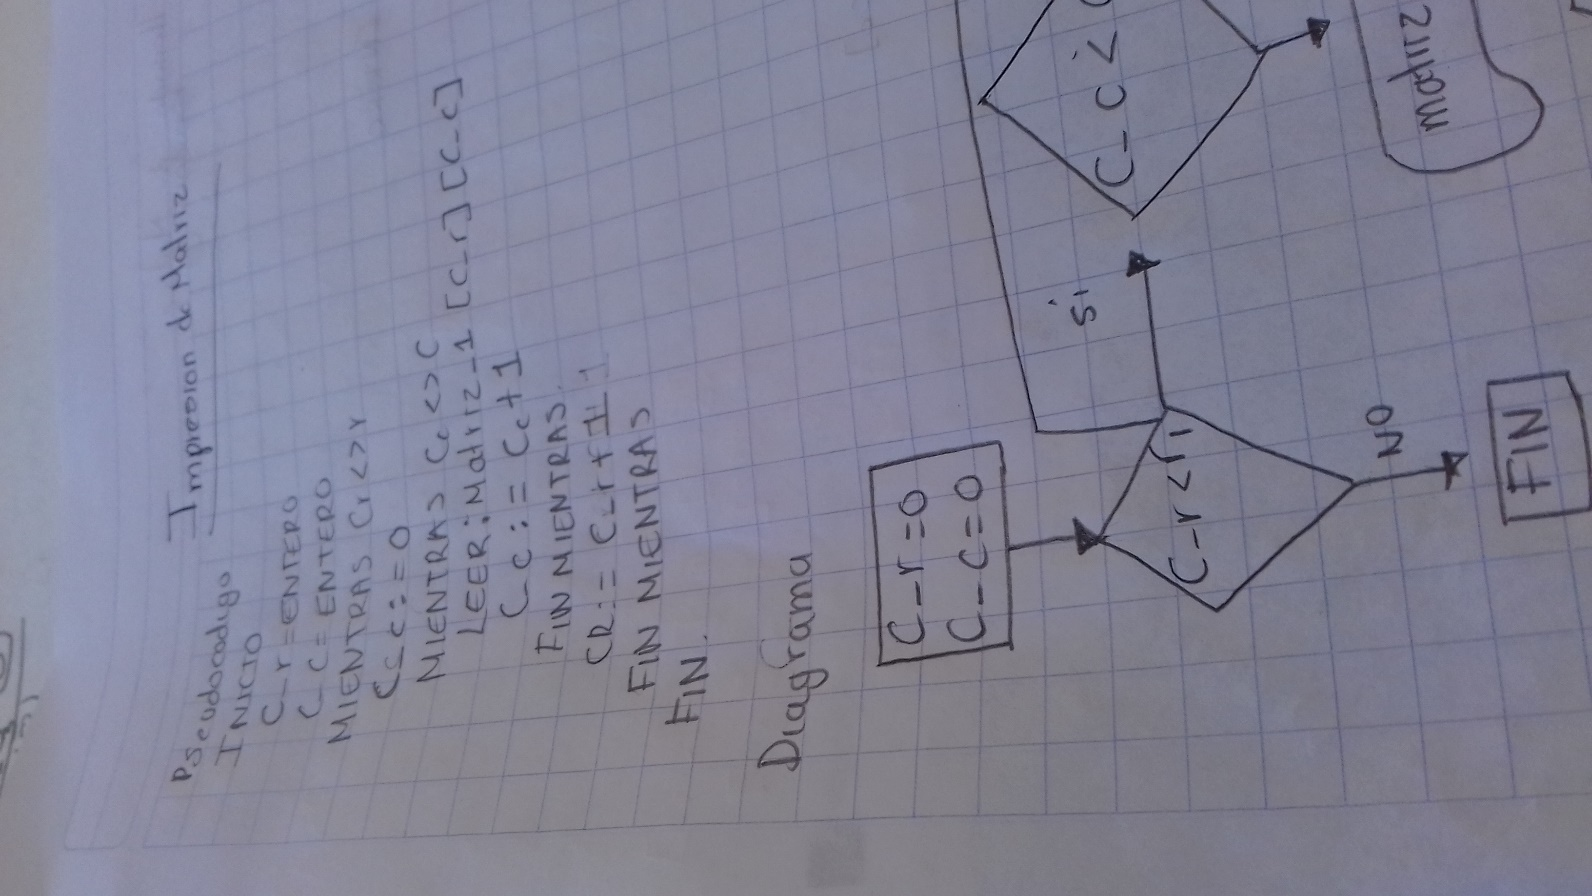 Impresion de Matriz
Pseudocodigo
INICIO
C-r = ENTERO
C-C = ENTERO
MIENTRAS Cr <> r
C-c := 0
MIENTRAS Cc <> C
LEER: Matriz-1 [C-r] [C-c]
C-c := Cc + 1
FIN MIENTRAS.
CR := C-r + 1
FIN MIENTRAS
FIN.
Diagrama
C-r = 0
C-c = 0
C-r < r1
Si
C-C <
NO
FIN